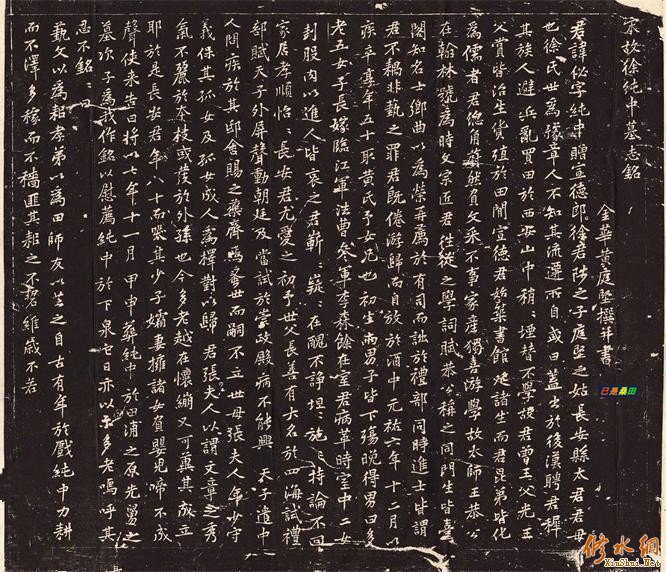 宋故徐純中墓志銘
金華黃庭堅撰并書
君諱佖字純中贈宣德郎徐君陟之子庭堅之姑長安縣太君君母
也徐氏世為豫章人不知其流遷所自或曰蓋出於後漢聘君穉
其族人避兵亂買田於西安山中稍稍堙替不學娛君曾王父光王
父賞皆治生貨殖於田閒宣德君始築書館延諸生而君昆弟皆化
為儒者君總角斐然有文采不事家產獨喜游學故太師王恭公
在翰林號為時文宗匠君往從之學詞賦恭公稱之同門生皆
聞知名士鄉曲以為榮再薦於有司而詘於禮部同時進士皆謂
君不耦非蓺之罪君既倦游歸而自放於酒中元祐六年十二月以
疾卒享年五十取黃氏予女兄也初生兩男子皆下殤晚得男曰多
老五女子長嫁臨江軍法曹參軍李森餘在室君病革時室中二女
刲股肉以進人皆哀之君嶄嶷在醜不諍坦施持論不回
家居孝順怡長安君尤愛之初予世父長善有大名於四海試禮
部賦天子外屏聲動朝廷及當試於崇政殿病不能興天子遣中
人問疾於其邸舍賜之藥齊竟蚤世而嗣不立世母張夫人年少守
義保其孤女及孤女成人為擇對以歸君張夫人以謂文章之秀
氣不麗於本枝或茂於外孫也今多老越在懷繃又可冀其成立
耶於是長安君年八十而哭其少子孀妻擁諸女負嬰兒啼不成
聲使來告曰將以七年十一月甲申葬純中於田浦之原先舅之
墓次子為我作銘以慰薦純中於下泉它日亦以示多老嗚呼其
忍不銘銘曰
蓺文以為耜孝弟以為田師友以芸之自古有年於戲純中力耕
而不澤多稼而不穡匪其耜之不若維歲不若
已是桑田
修水網
XiuShui.Net